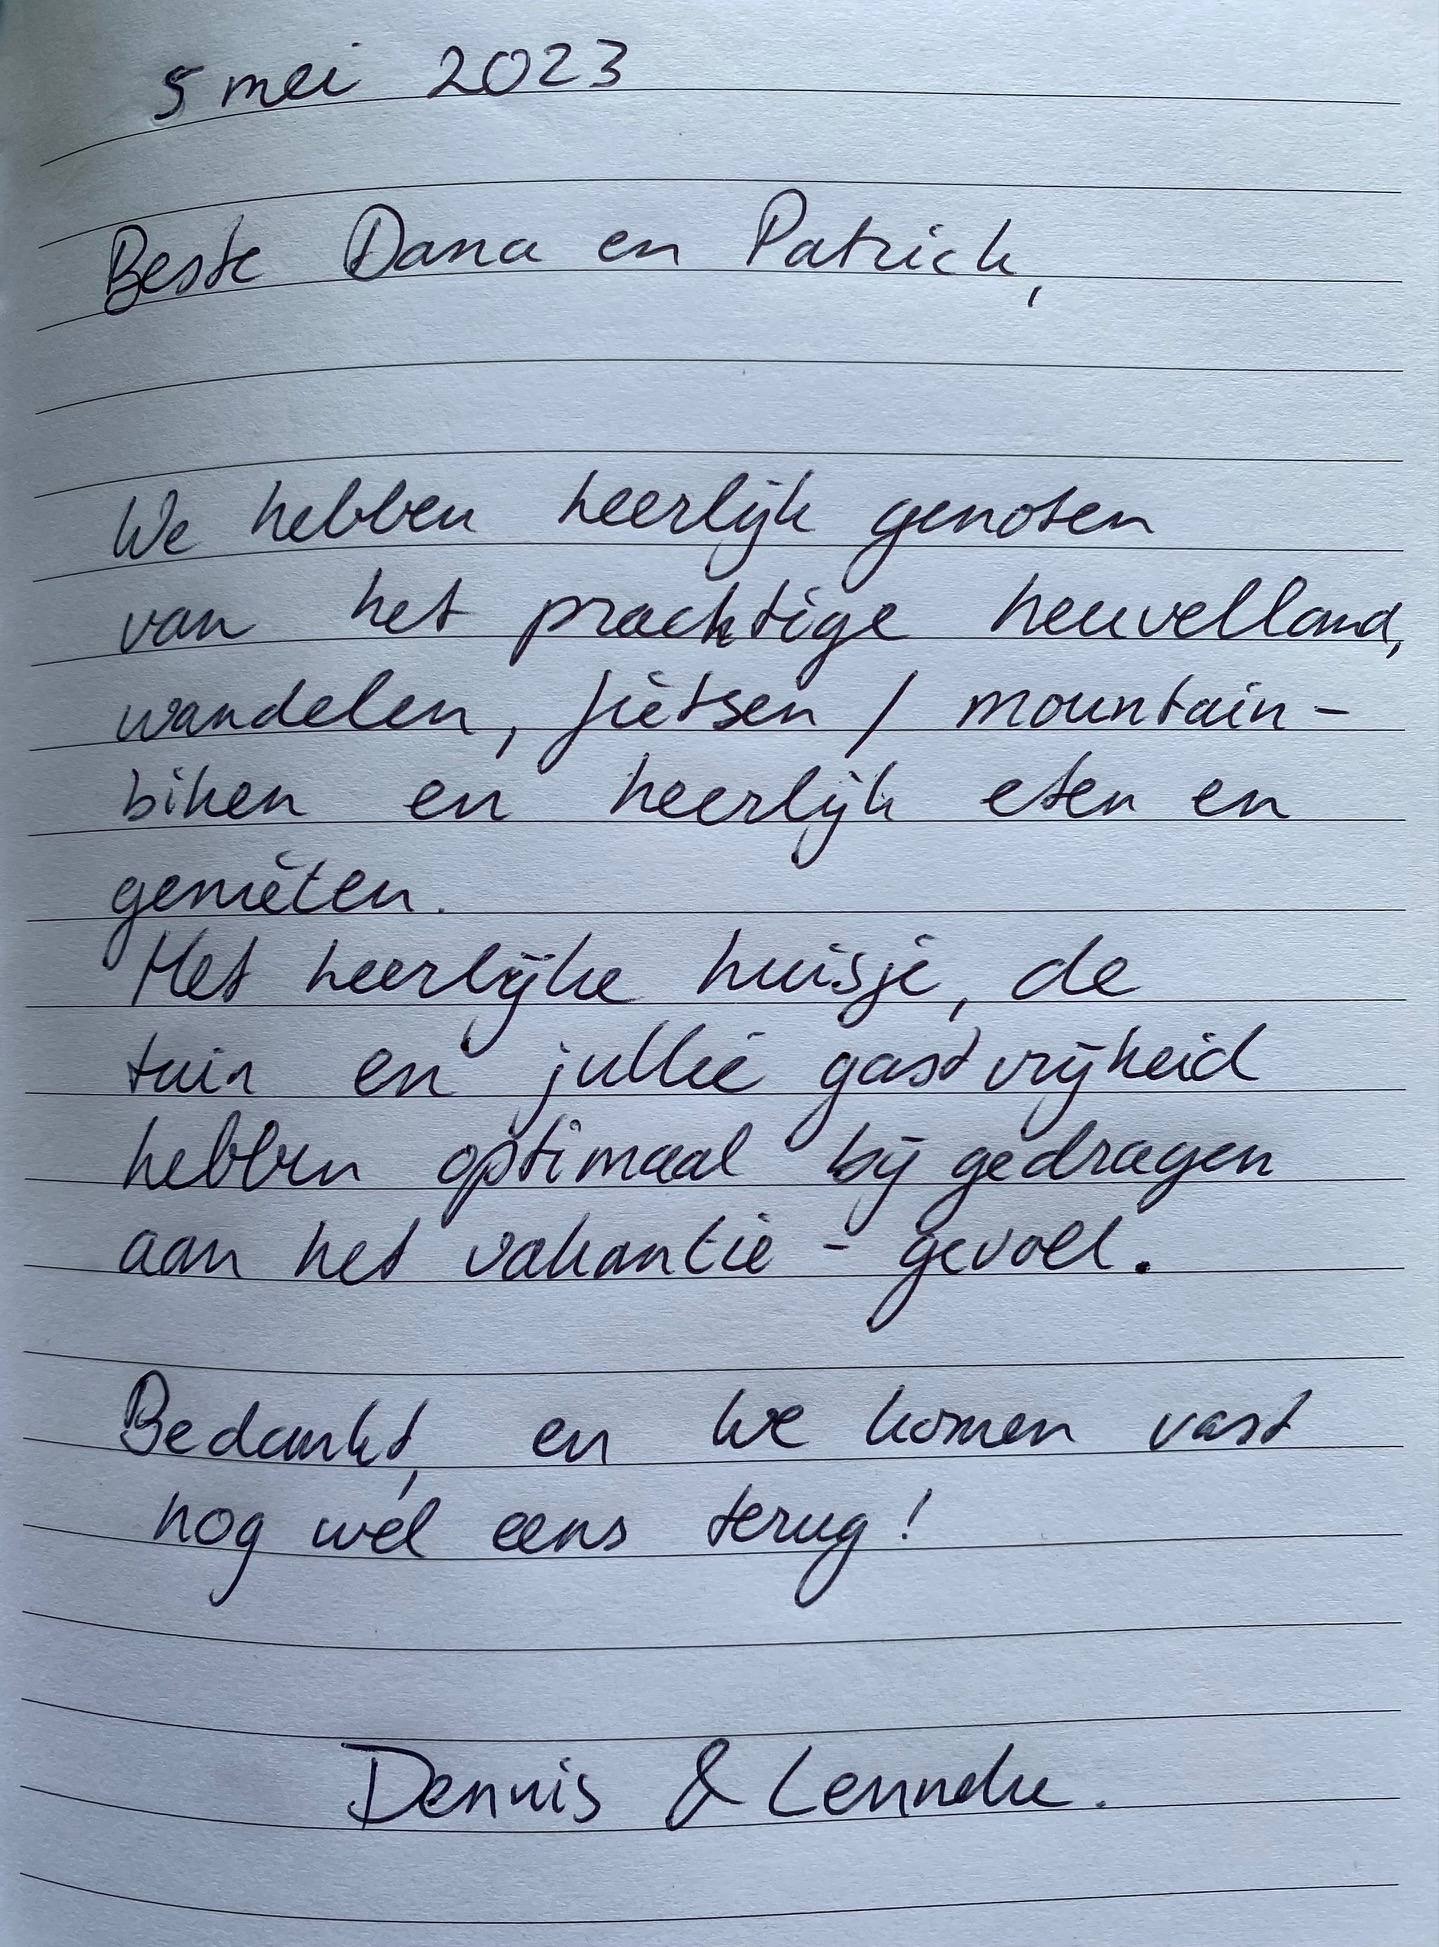 5 mei 2023
Beste Dana en Patrick,
We hebben heerlijk genoten
van het prachtige heuvelland,
wandelen, fietsen / mountain-
biken en heerlijk eten en
genieten.
Het heerlijke huisje, de
tuin en jullie gastvrijheid
hebben optimaal bij gedragen
aan het vakantie - gevoel.
Bedankt, en we komen vast
nog wel eens terug!
Dennis & Lenneke.